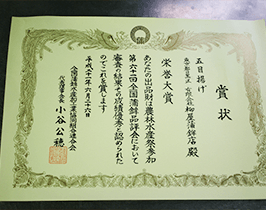 賞状
五目揚げ
有限会社 柳屋蒲鉾店 殿
栄誉大賞
あなたの出品財は農林水産祭参加
第六十一回全国蒲鉾品評会において
審査の結果その成績優秀と認められた
のでこれを賞します
平成二十一年六月二十六日
全国蒲鉾水産加工業協同組合連合会
代表理事会長 小谷公穂